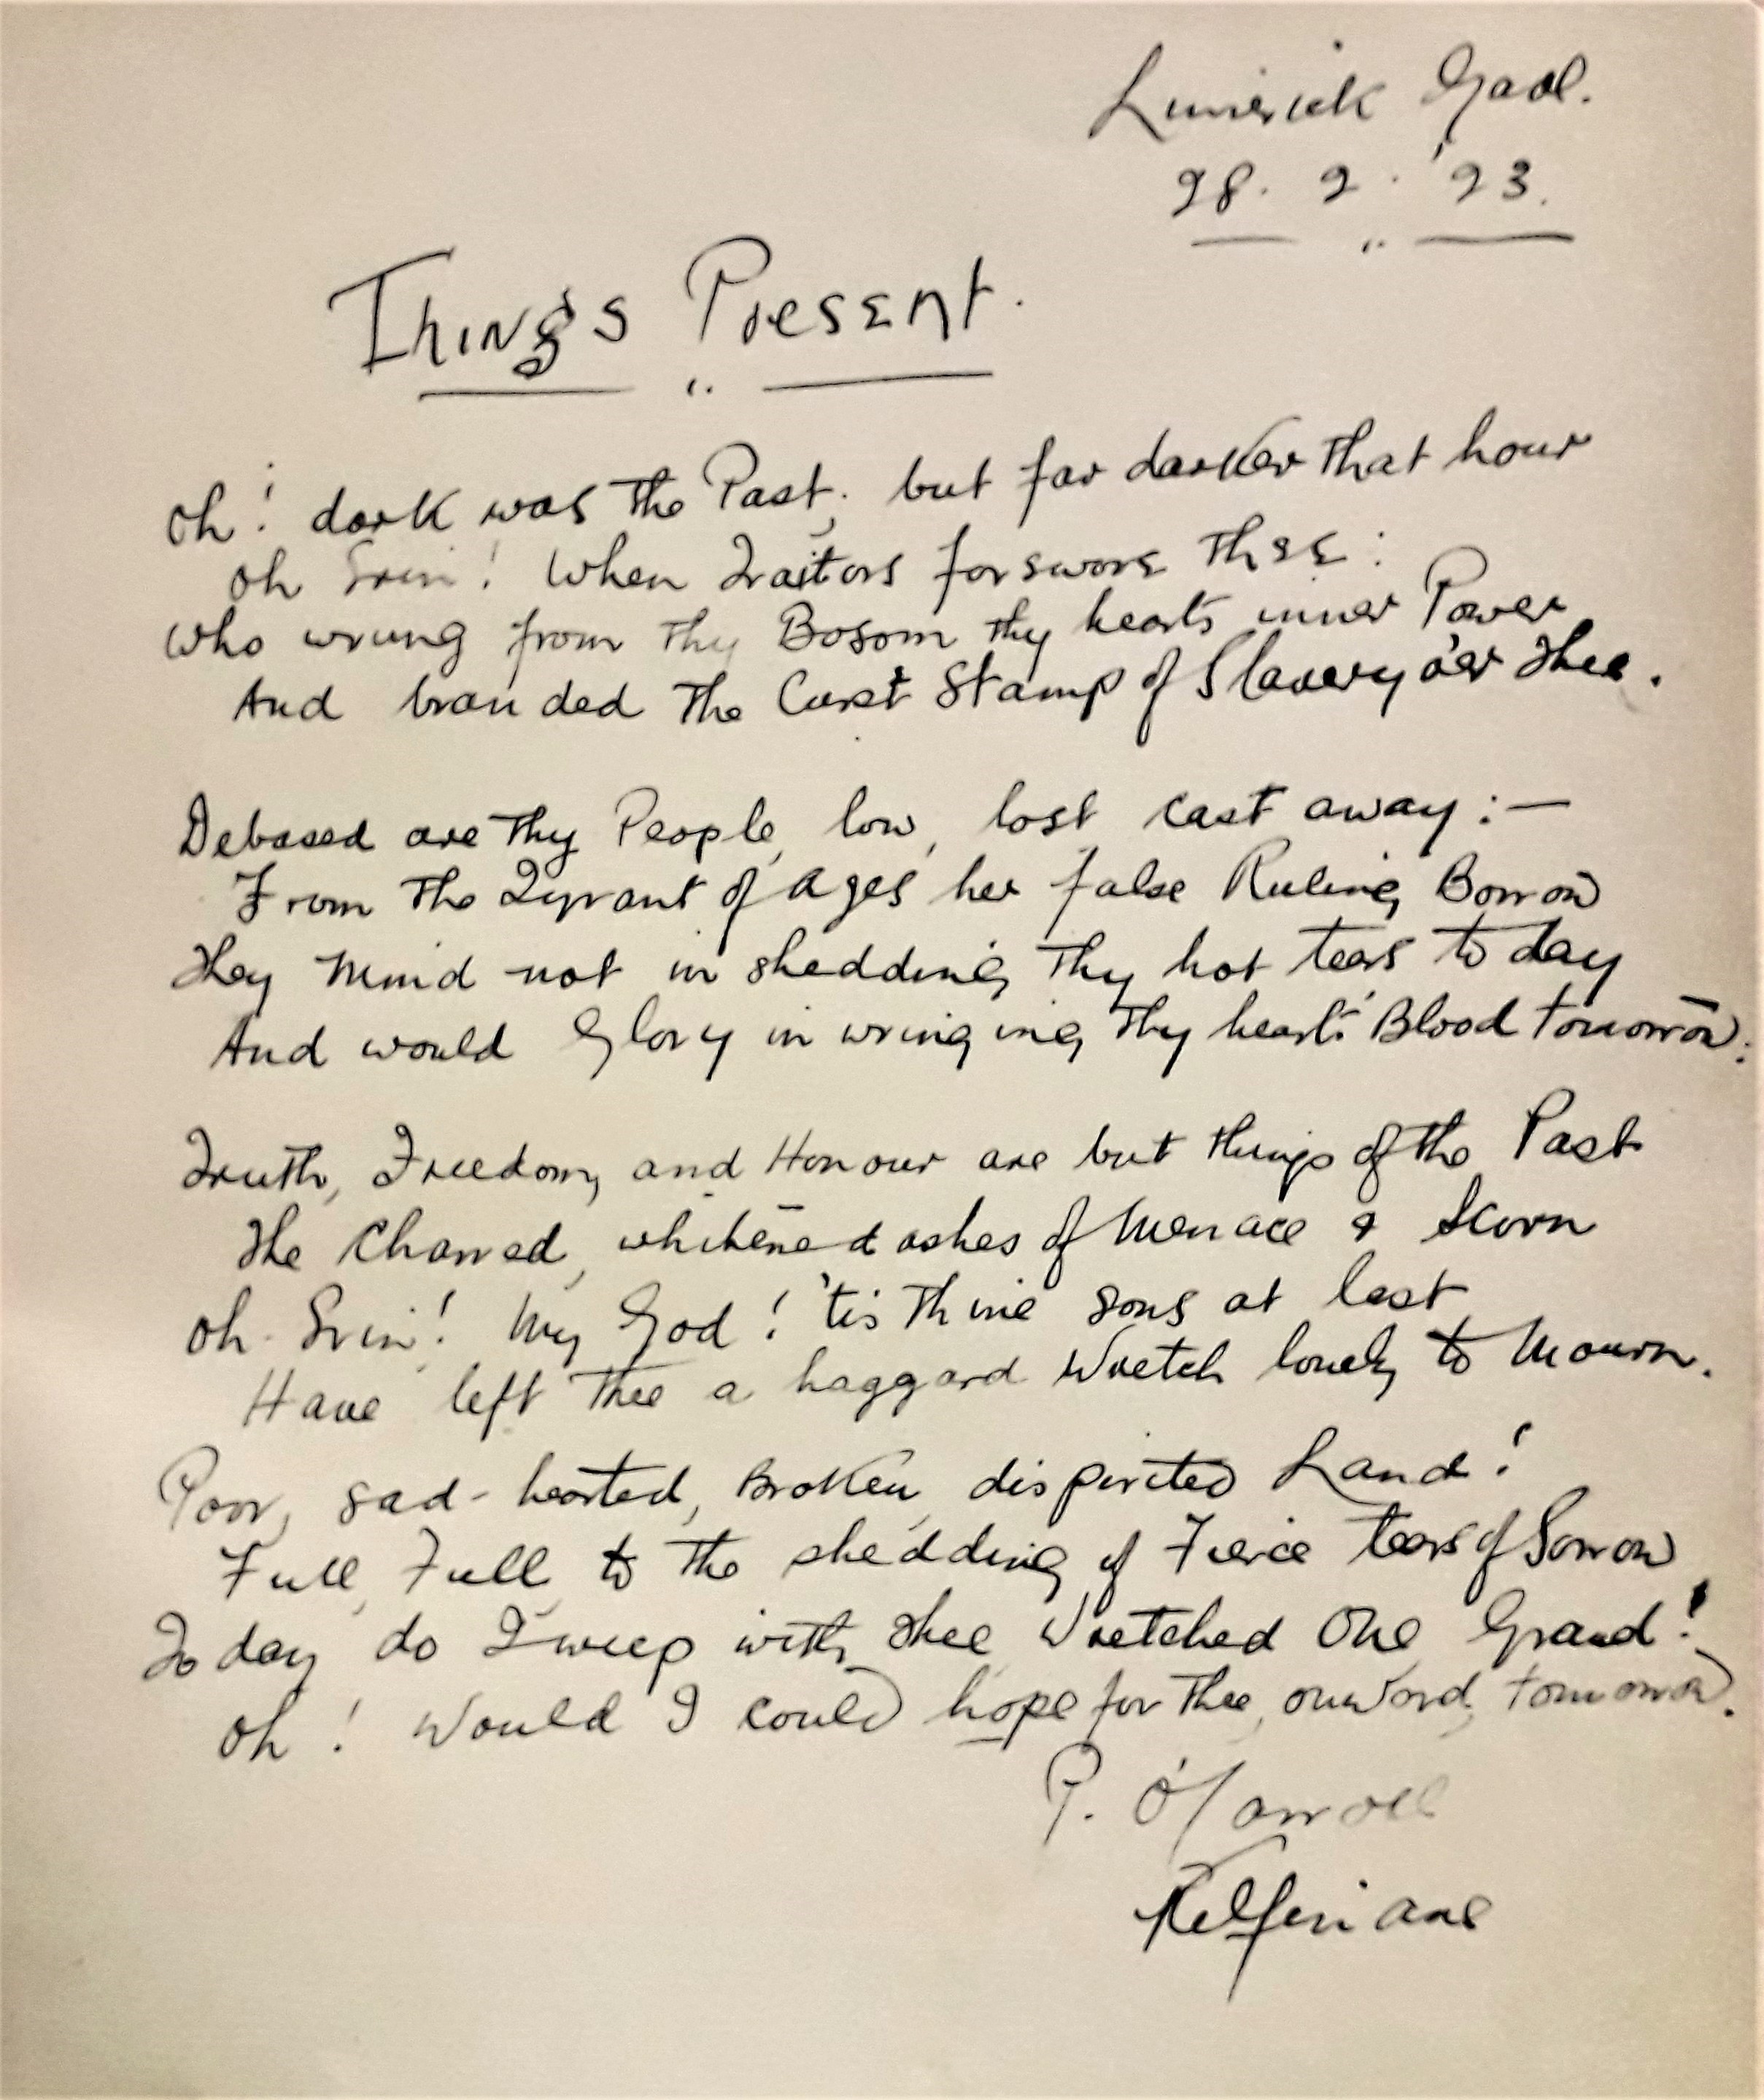 Limerick Gaol.
28. 2. '23.
Things Present.
Oh! dark was the Past; but far darker that hour
Oh Erin! When Traitors forswore Thee:
Who wrung from Thy Bosom Thy heart's inner Power
And branded The Curst Stamp of Slavery o'er Thee.
Debased are Thy People, low, lost cast away:—
From The Tyrant of Ages her false Ruling Borrow
They Mind not in shedding Thy hot tears to day
And would Glory in wringing Thy heart's Blood tomorrow:
Truth, Freedom, and Honour are but things of the Past
The Charred, whitened ashes of Menace & Scorn
Oh Erin! My God! 'tis Thine sons at last
Have left Thee a haggard Wretch lonely to Mourn.
Poor, sad-hearted, Broken, dispirited Land!
Full, Full to The shedding of Fierce tears of Sorrow
To day do I weep with Thee Wretched One Grand!
Oh! Would I could hope for Thee, onward, tomorrow.
P. O'Carroll
Kilfinane